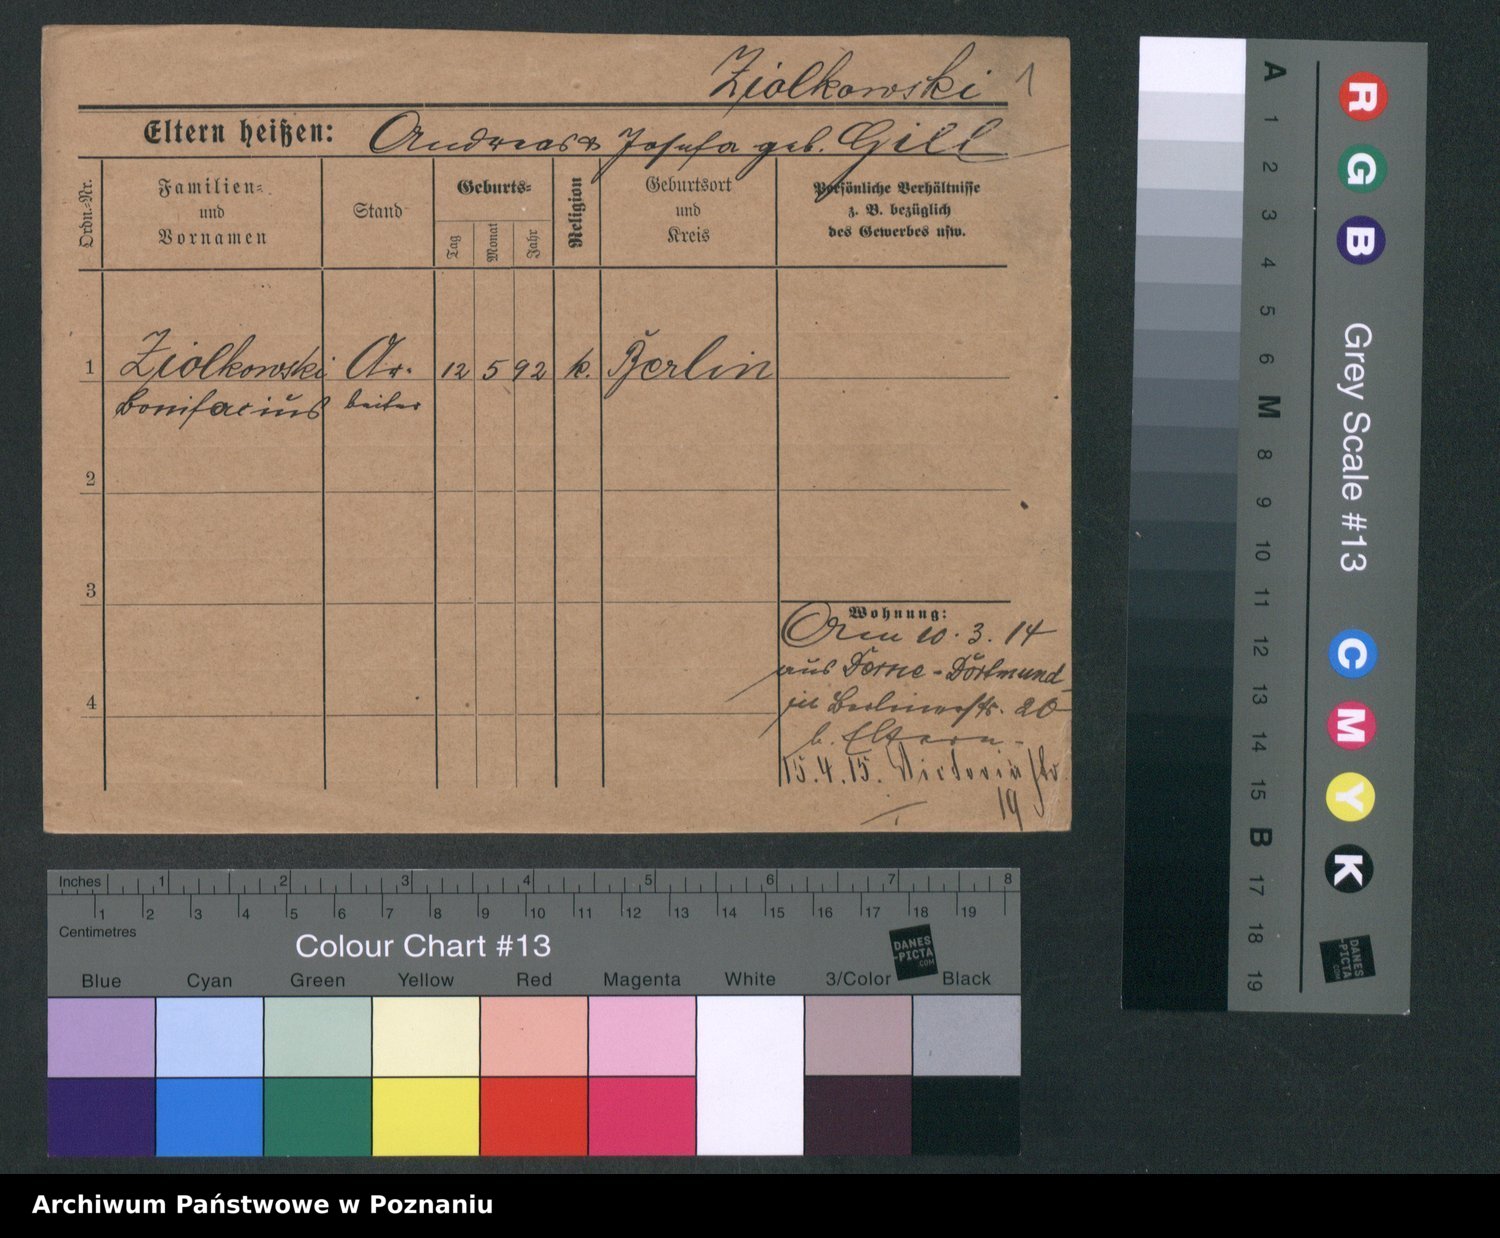 Ziolkowski 1
Eltern heißen: Andreas & Josefa geb. Gill
Ordn.-Nr.
Familien-
und
Vornamen
Stand
Geburts-
Tag
Monat
Jahr
Religion
Geburtsort
und
Kreis
Persönliche Verhältnisse
z. B. bezüglich
des Gewerbes usw.
1 Ziolkowski Ar- 12 5 92 k. Berlin
Bonifacius beiter
2
3
4
Wohnung:
10. 3. 14
aus Derne-Dortmund
Berlinerstr. 20
b. Eltern.
15.4.15. Victoriastr.
19
Inches 1 2 3 4 5 6 7 8
1 2 3 4 5 6 7 8 9 10 11 12 13 14 15 16 17 18 19
Centimetres
Colour Chart #13
DANES
-PICTA
.COM
Blue Cyan Green Yellow Red Magenta White 3/Color Black
A 1 2 3 4 5 6 M 8 9 10 11 12 13 14 15 B 17 18 19
R G B Grey Scale #13 C M Y K
DANES
-PICTA
.COM
Archiwum Państwowe w Poznaniu